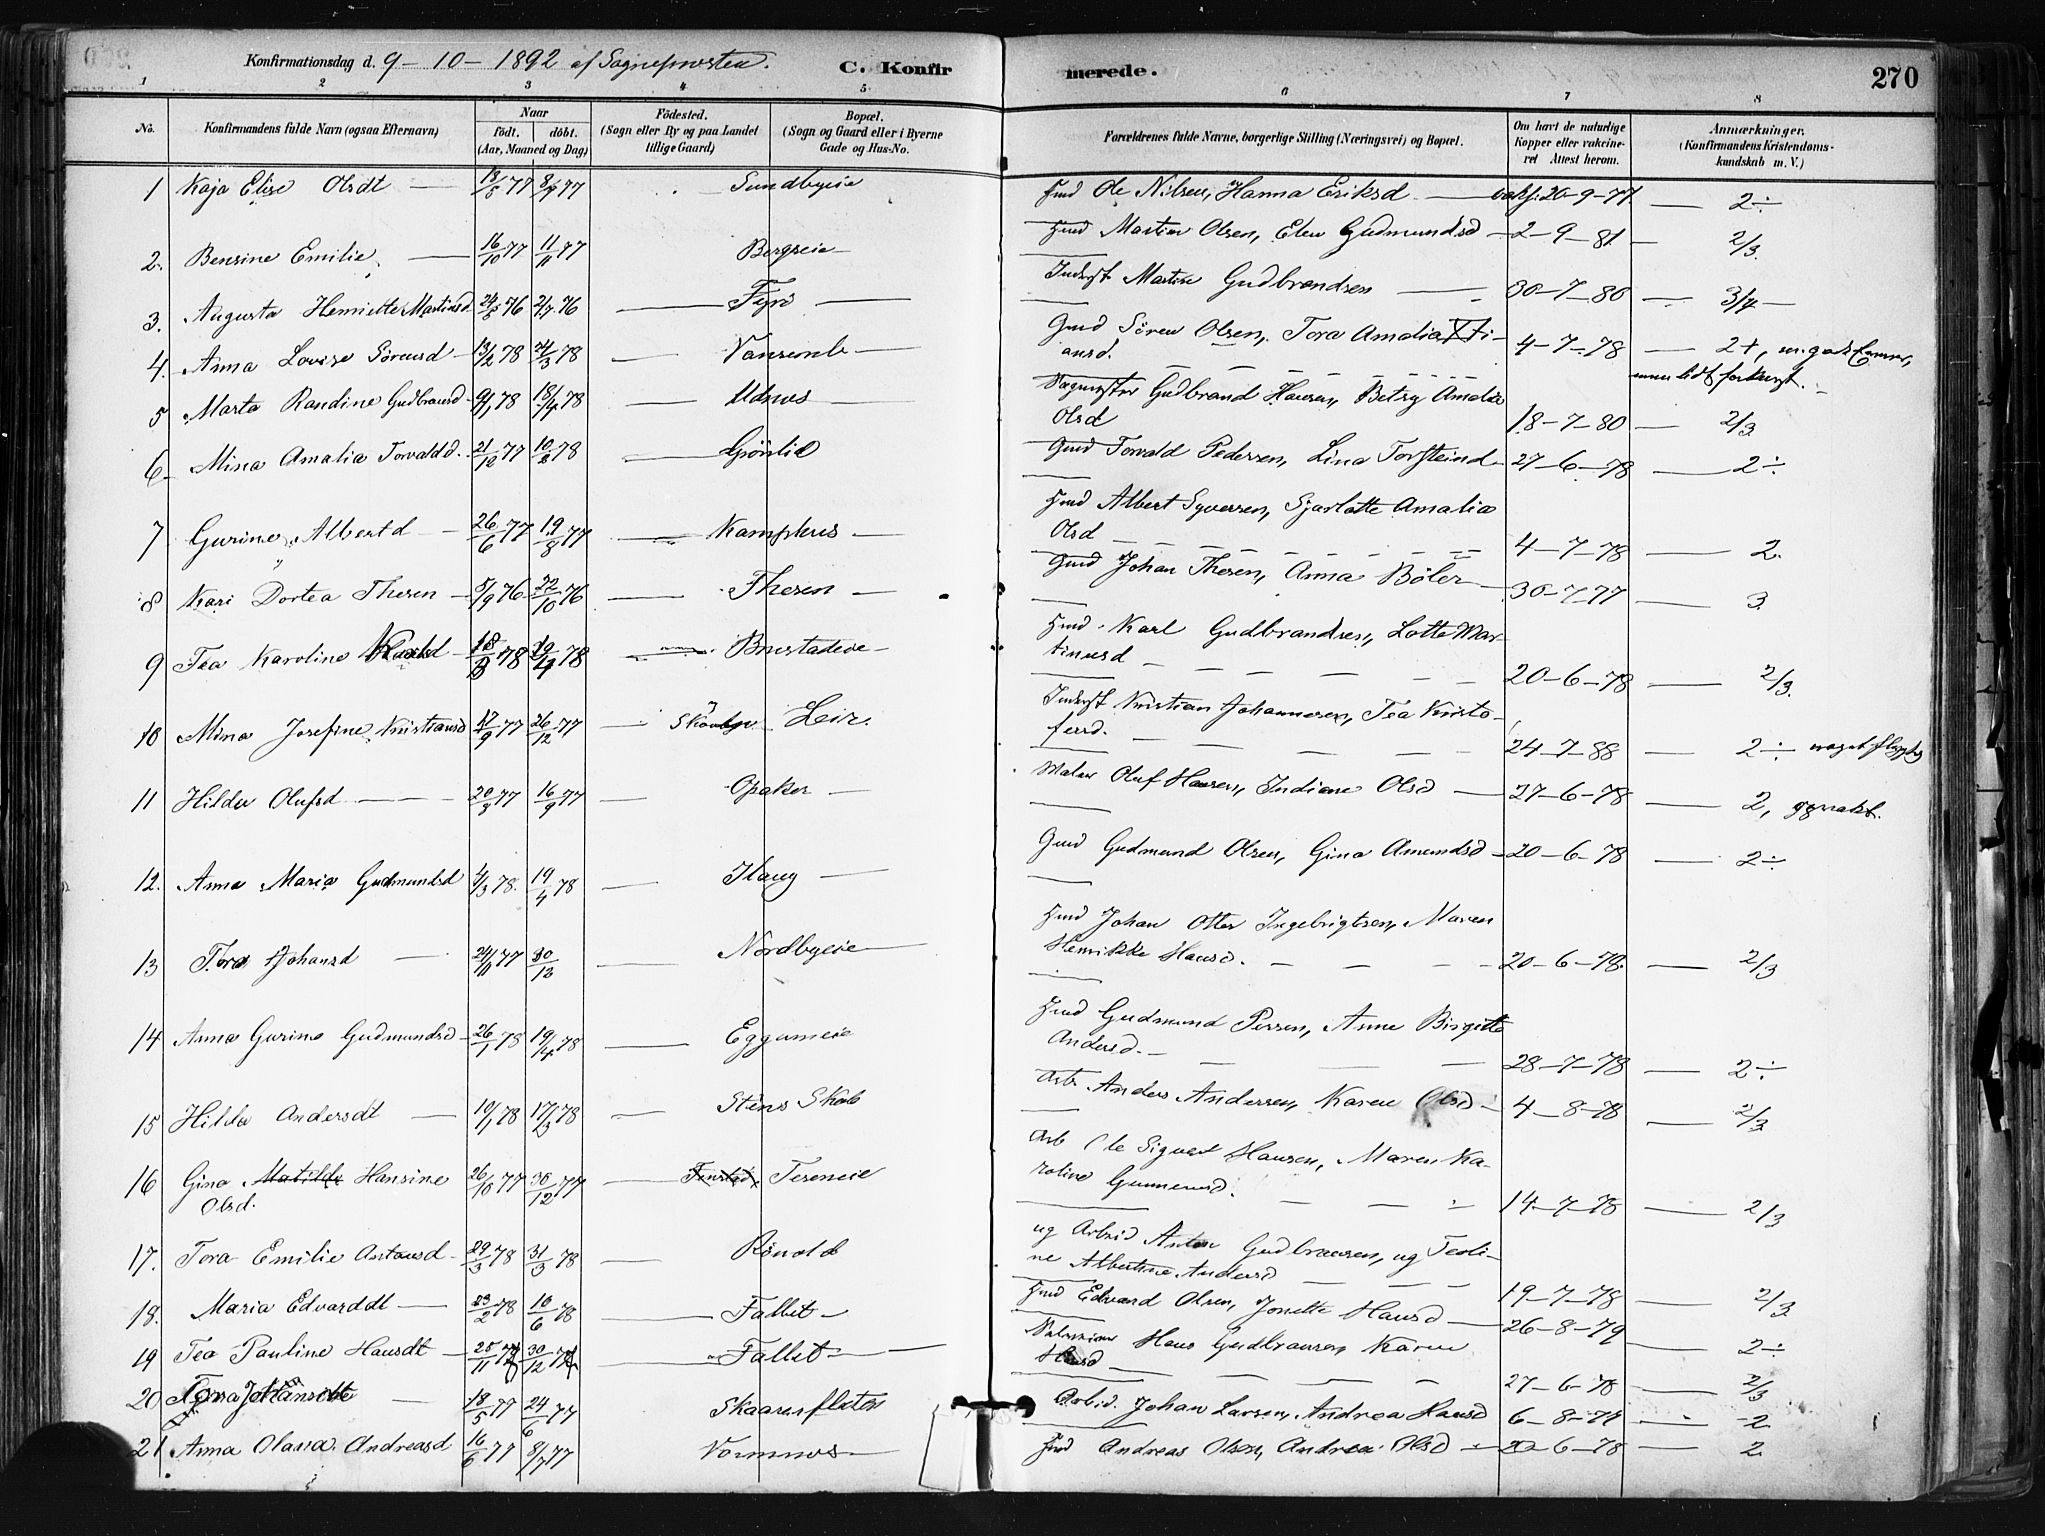 Konfirmationsdag d. 9-10-1892 af Sogneprosten. C. Konfirmerede. 270
1 2 3 4 5 6 7 8
No.
Konfirmandens fulde Navn (ogsaa Efternavn)
Naar
födt. döbt.
(Aar, Maaned og Dag)
Födested.
(Sogn eller By og paa Landet
tillige Gaard)
Bopæl.
(Sogn og Gaard eller i Byerne
Gade og Hus-No.
Forældrenes fulde Navne, borgerlige Stilling (Næringsvei) og Bopæl.
Om havt de naturlige
Kopper eller vakcine-
ret Attest herom.
Anmærkninger.
(Konfirmandens Kristendoms-
kundskab m. V.)
1 Kaja Elise Olsdt 77 77 Sundbyeie Ole Nilsen, Hanna Eriksd 20-9-77 2÷
2. Bensine Emilie 16/10 77 11/11 77 Bergseie Martin Olsen, Elen Gudmundsd 2-9-81 2/3.
3. Augusta Henriette Martinsd 76 2/7 76 Fyri Inderst Martin Gudbrandsen 30-7-80 3/4
4. Anna Lovise Sörensd 13/2 78 24/3 78 Gmd Sören Olsen, Tora Amalia
ansd. 4-7-78 2+,
5 Marta Randine Gudbransd 9/1 78 18/4 78 Udnes Gudbrand Hansen, Betsy Amalia
Olsd 18-7-80 2/3
6 Mina Amalia Torvaldd. 21/12 77 10/2 78 Grönlie Gmd Torvald Pedersen, Lina Torsteind 27-6-78 2÷
7 Gurine Albertd 26/6 77 19/8 77 Kamphus Albert Syversen, Sjarlotte Amalia
Olsd 4-7-78 2.
8 Kari Dortea Thesen 5/9 76 22/10 76 Thesen Gmd Johan Thesen, Anna Böler 30-7-77 3
9 Tea Karoline Karlsd 78 78 Brustadeie Karl Gudbrandsen, Lotte Mar-
tinusd 20-6-78 2/3.
10 Mina Josefine Kristiansd 17/9 77 26/12 77 Leir. Inderst Kristian Johannesen, Tea Kristo-
fersd. 24-7-88 2÷
11 Hilda Olufsd 77 16/9 77 Opaker Maler Oluf Hansen, Indiane Olsd 27-6-78 2,
12. Anna Maria Gudmundsd 4/3 78. 19/4 78 Haug Gmd Gudmund Olsen, Gina Amundsd 20-6-78 2÷
13 Tora Johansd 24/10 77 30/12 Nordbyeie Johan Otter Ingebrigtsen, Maren
Henrikke Hansd. 20-6-78. 2/3
14 Anna Gurine Gudmundsd 26/1 78 19/4 78 Eggumeie Gudmund Persen, Anne Birgitte
Andersd. 28-7-78 2÷
15 Hilda Andersdt 10/1 78 17/3 78 Arb. Anders Andersen, Karen Olsd 4-8-78 2/3
16 Gina Matilde Hansine 26/10 77 30/12 77 Teseneie Arb Ole Sigvart Hansen, Maren Ka-
Olsd. roline Gunnersd. 14-7-78 2/3
17. Tora Emilie Antonsd 29/3 78 31/3 78 Rönold ug Arbeid Anton Gudbransen, ug Teoli-
ne Albertine Andersd 19-7-78 2/3
18. Maria Edvarddt 23/2 78 10/6 78 Fallet Edvard Olsen, Jonette Hansd 26-8-79 2÷
19 Tea Pauline Hansdt 25/11 30/12 Fallet Hans Gudbransen, Karen
Hansd 27-6-78 2/3
20 18/5 77 24/6 77 Skaarerfloten Arbid. Johan Larsen, Andrea Hansd 6-8-77 2
21 Anna Olava Andreasd 16/6 77 8/7 77 Vormnes Andreas Olsen, Andrea Olsd 20-6-78 2